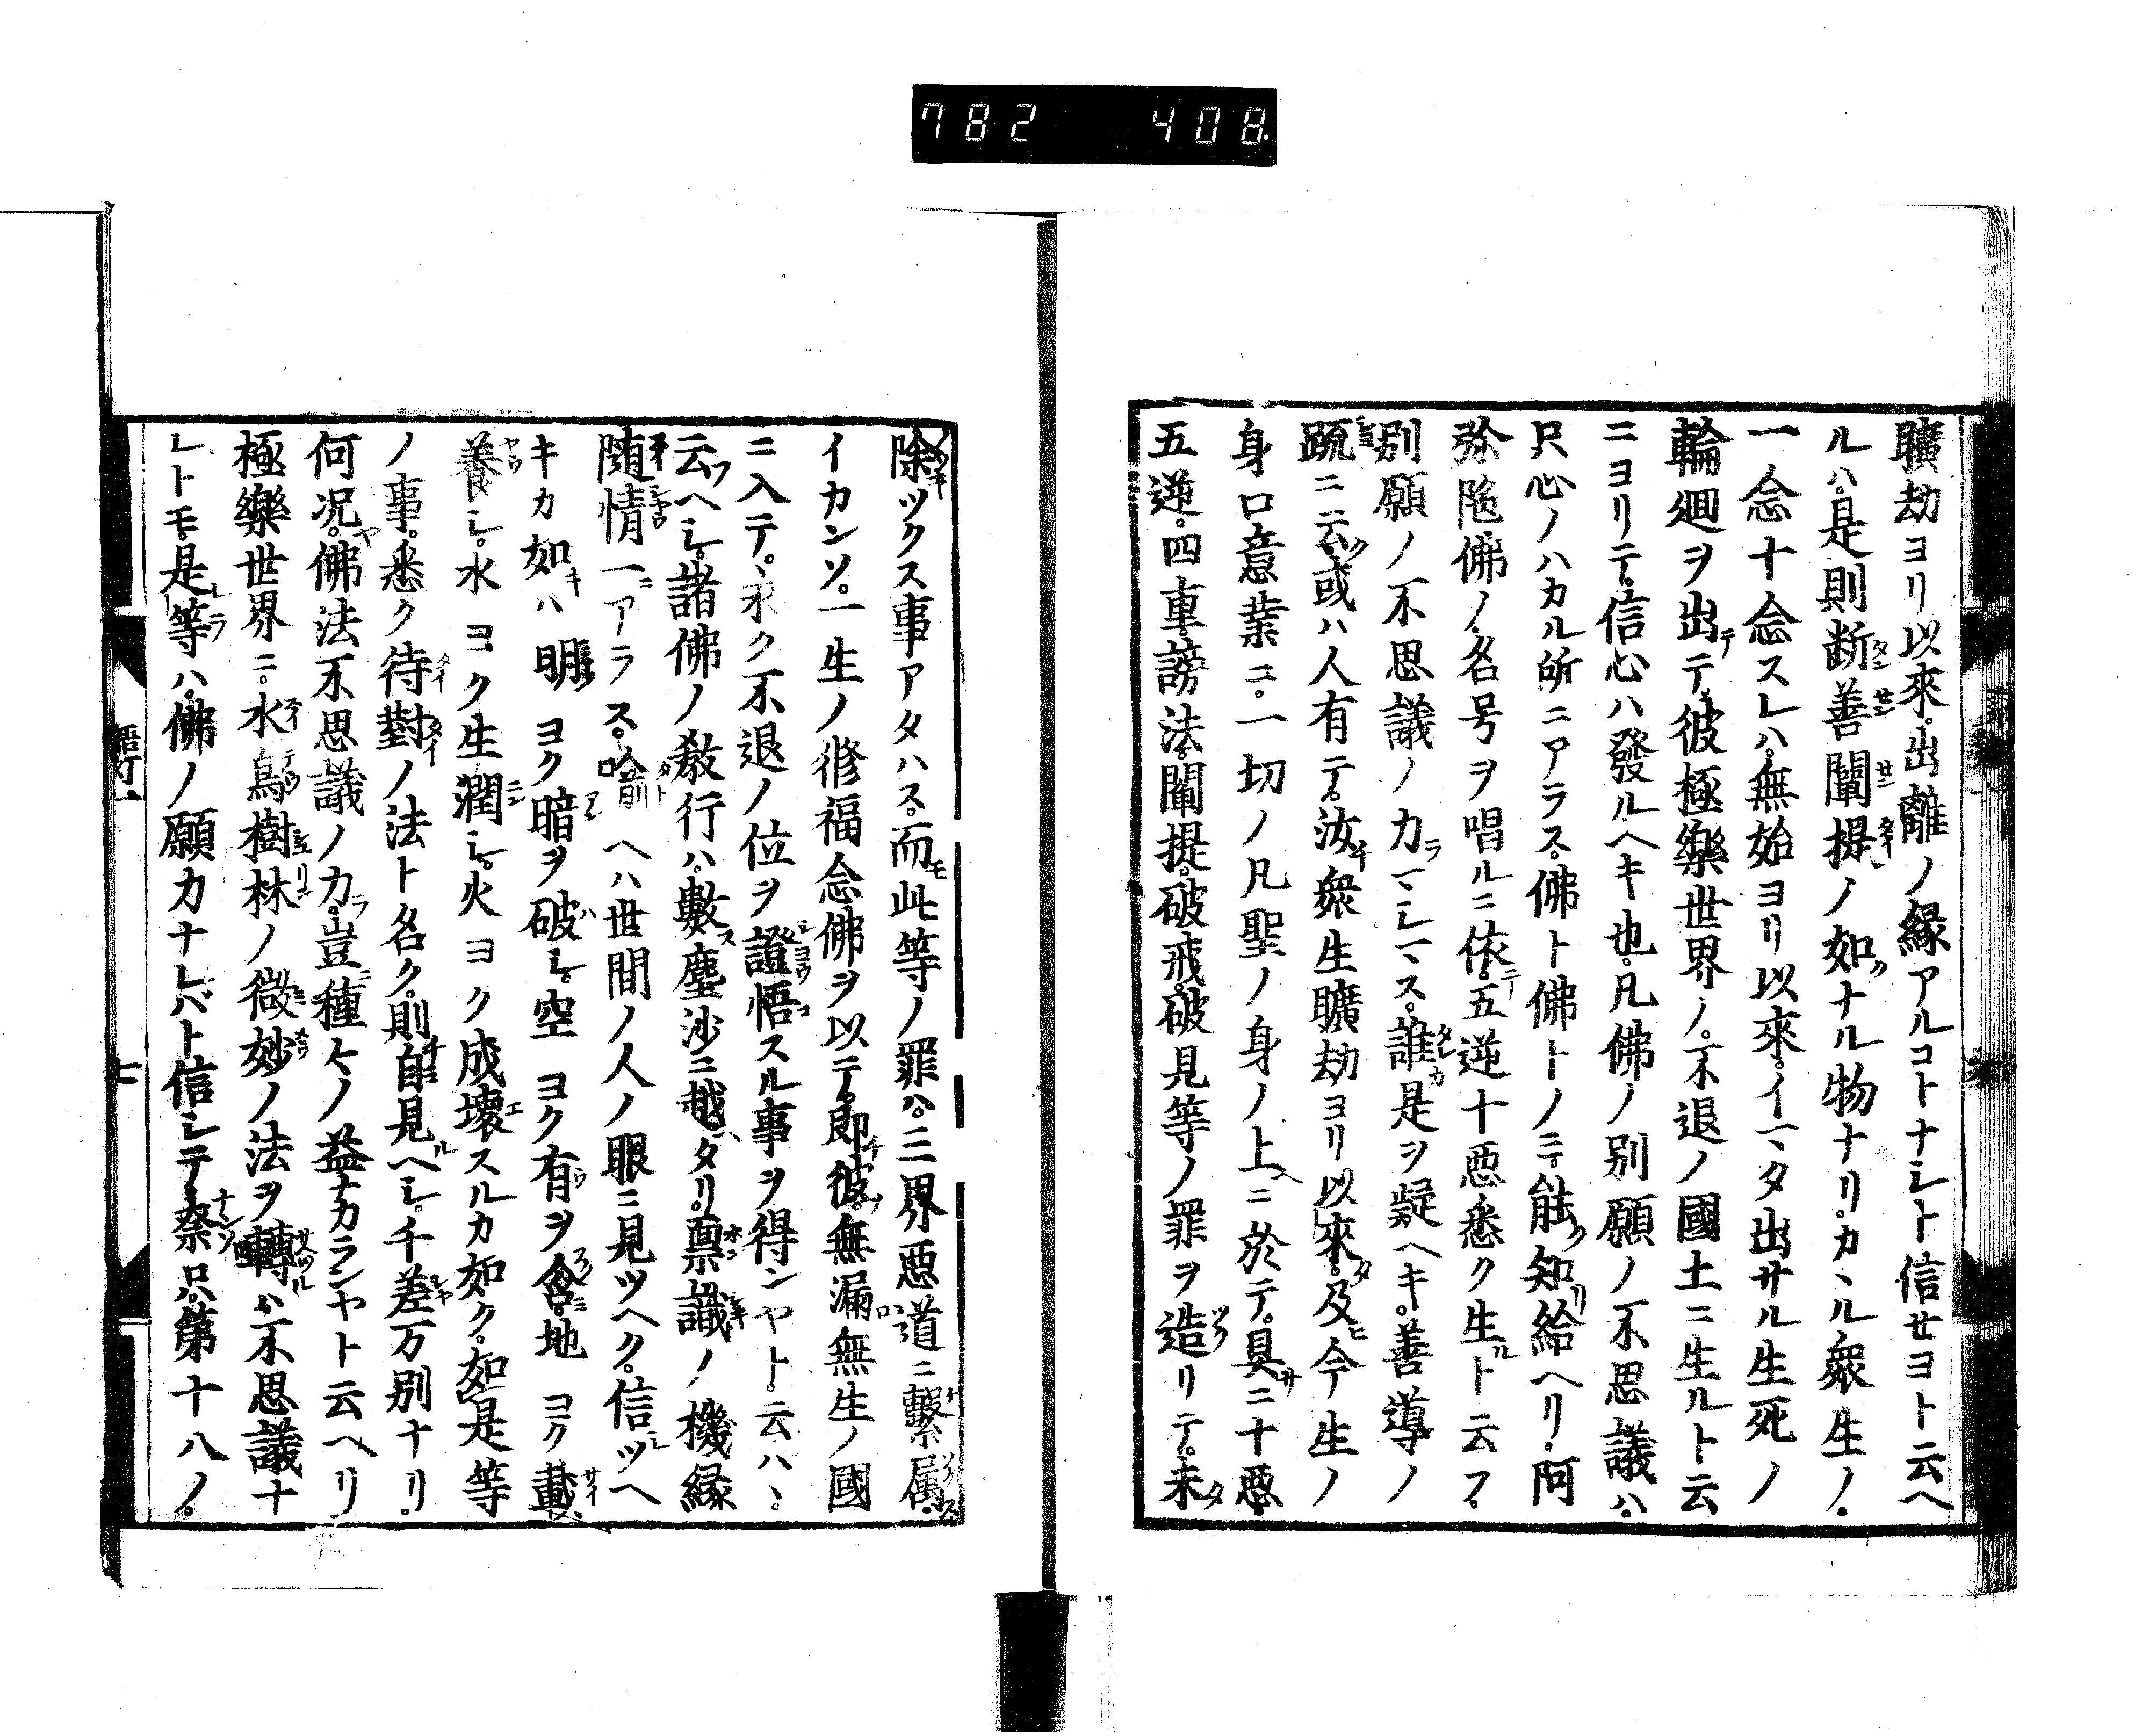 782 408
曠劫ヨリ以來。出離ノ縁アルコトナシト信セヨト云ヘ
ルハ。是則断善闡提ノ如ナル物ナリ。カヽル衆生ノ。
一念十念スレハ。無始ヨリ以來。イマタ出サル生死ノ
輪廻ヲ出テ。彼極樂世界ノ。不退ノ國土ニ生ルト云
ニヨリテ。信心ハ發ルヘキ也。凡佛ノ別願ノ不思議ハ。
只心ノハカル所ニアラス。佛ト佛トノミ。能知給ヘリ。阿
弥陁佛ノ。名号ヲ唱ルニ依テ。五逆十悪悉ク生ト云フ。
別願ノ不思議ノ力マシマス。誰カ是ヲ疑ヘキ。善導ノ
䟽ニ云。或ハ人有テ。汝衆生曠劫ヨリ以來。及ヒ今生ノ
身口意業ニ。一切ノ凡聖ノ身ノ上ニ於テ。具ニ十悪
五逆。四重。謗法。闡提。破戒。破見等ノ罪ヲ造リテ。未タ
除ツクス事アタハス。而モ此等ノ罪ハ。三界悪道ニ繋属。
イカンソ。一生ノ修福念佛ヲ以テ。即彼。無漏無生ノ國
ニ入テ。永ク不退ノ位ヲ證悟スル事ヲ得ンヤト。云ハヽ。
云ヘシ。諸佛ノ教行ハ。數塵沙ニ越タリ。稟識ノ機縁
随情一ニアラス。喩ヘハ世間ノ人ノ眼ニ見ツヘク。信シツヘ
キカ如キハ 明 ヨク暗ヲ破シ。空 ヨク有ヲ含。地 ヨク載
養シ。水 ヨク生潤シ。火ヨク成壞スルカ如ク。如是等
ノ事。悉ク待對ノ法ト名ク。則自見ヘシ。千差万別ナリ。
何况ヤ。佛法不思議ノ力。豈種々ノ益ナカランヤト云ヘリ。
極樂世界ニ。水鳥樹林ノ微妙ノ法ヲ轉ルハ。不思議ナ
レトモ。是等ハ。佛ノ願力ナレバト信シテ。奈只。第十八ノ。
語灯一 七